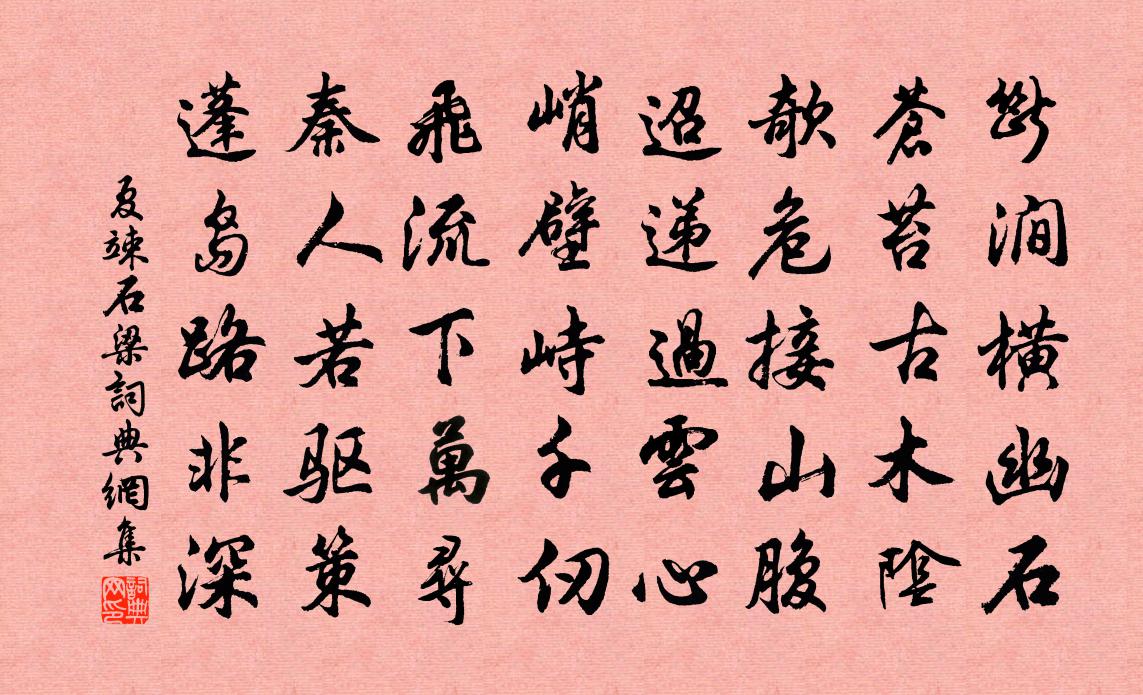 斷澗橫幽石
蒼苔古木陰
欹危接山腹
迢遞過雲心
峭壁峙千仞
飛流下萬尋
秦人若驅策
蓬島路非深
夏竦石梁詞典網集
詞典网印